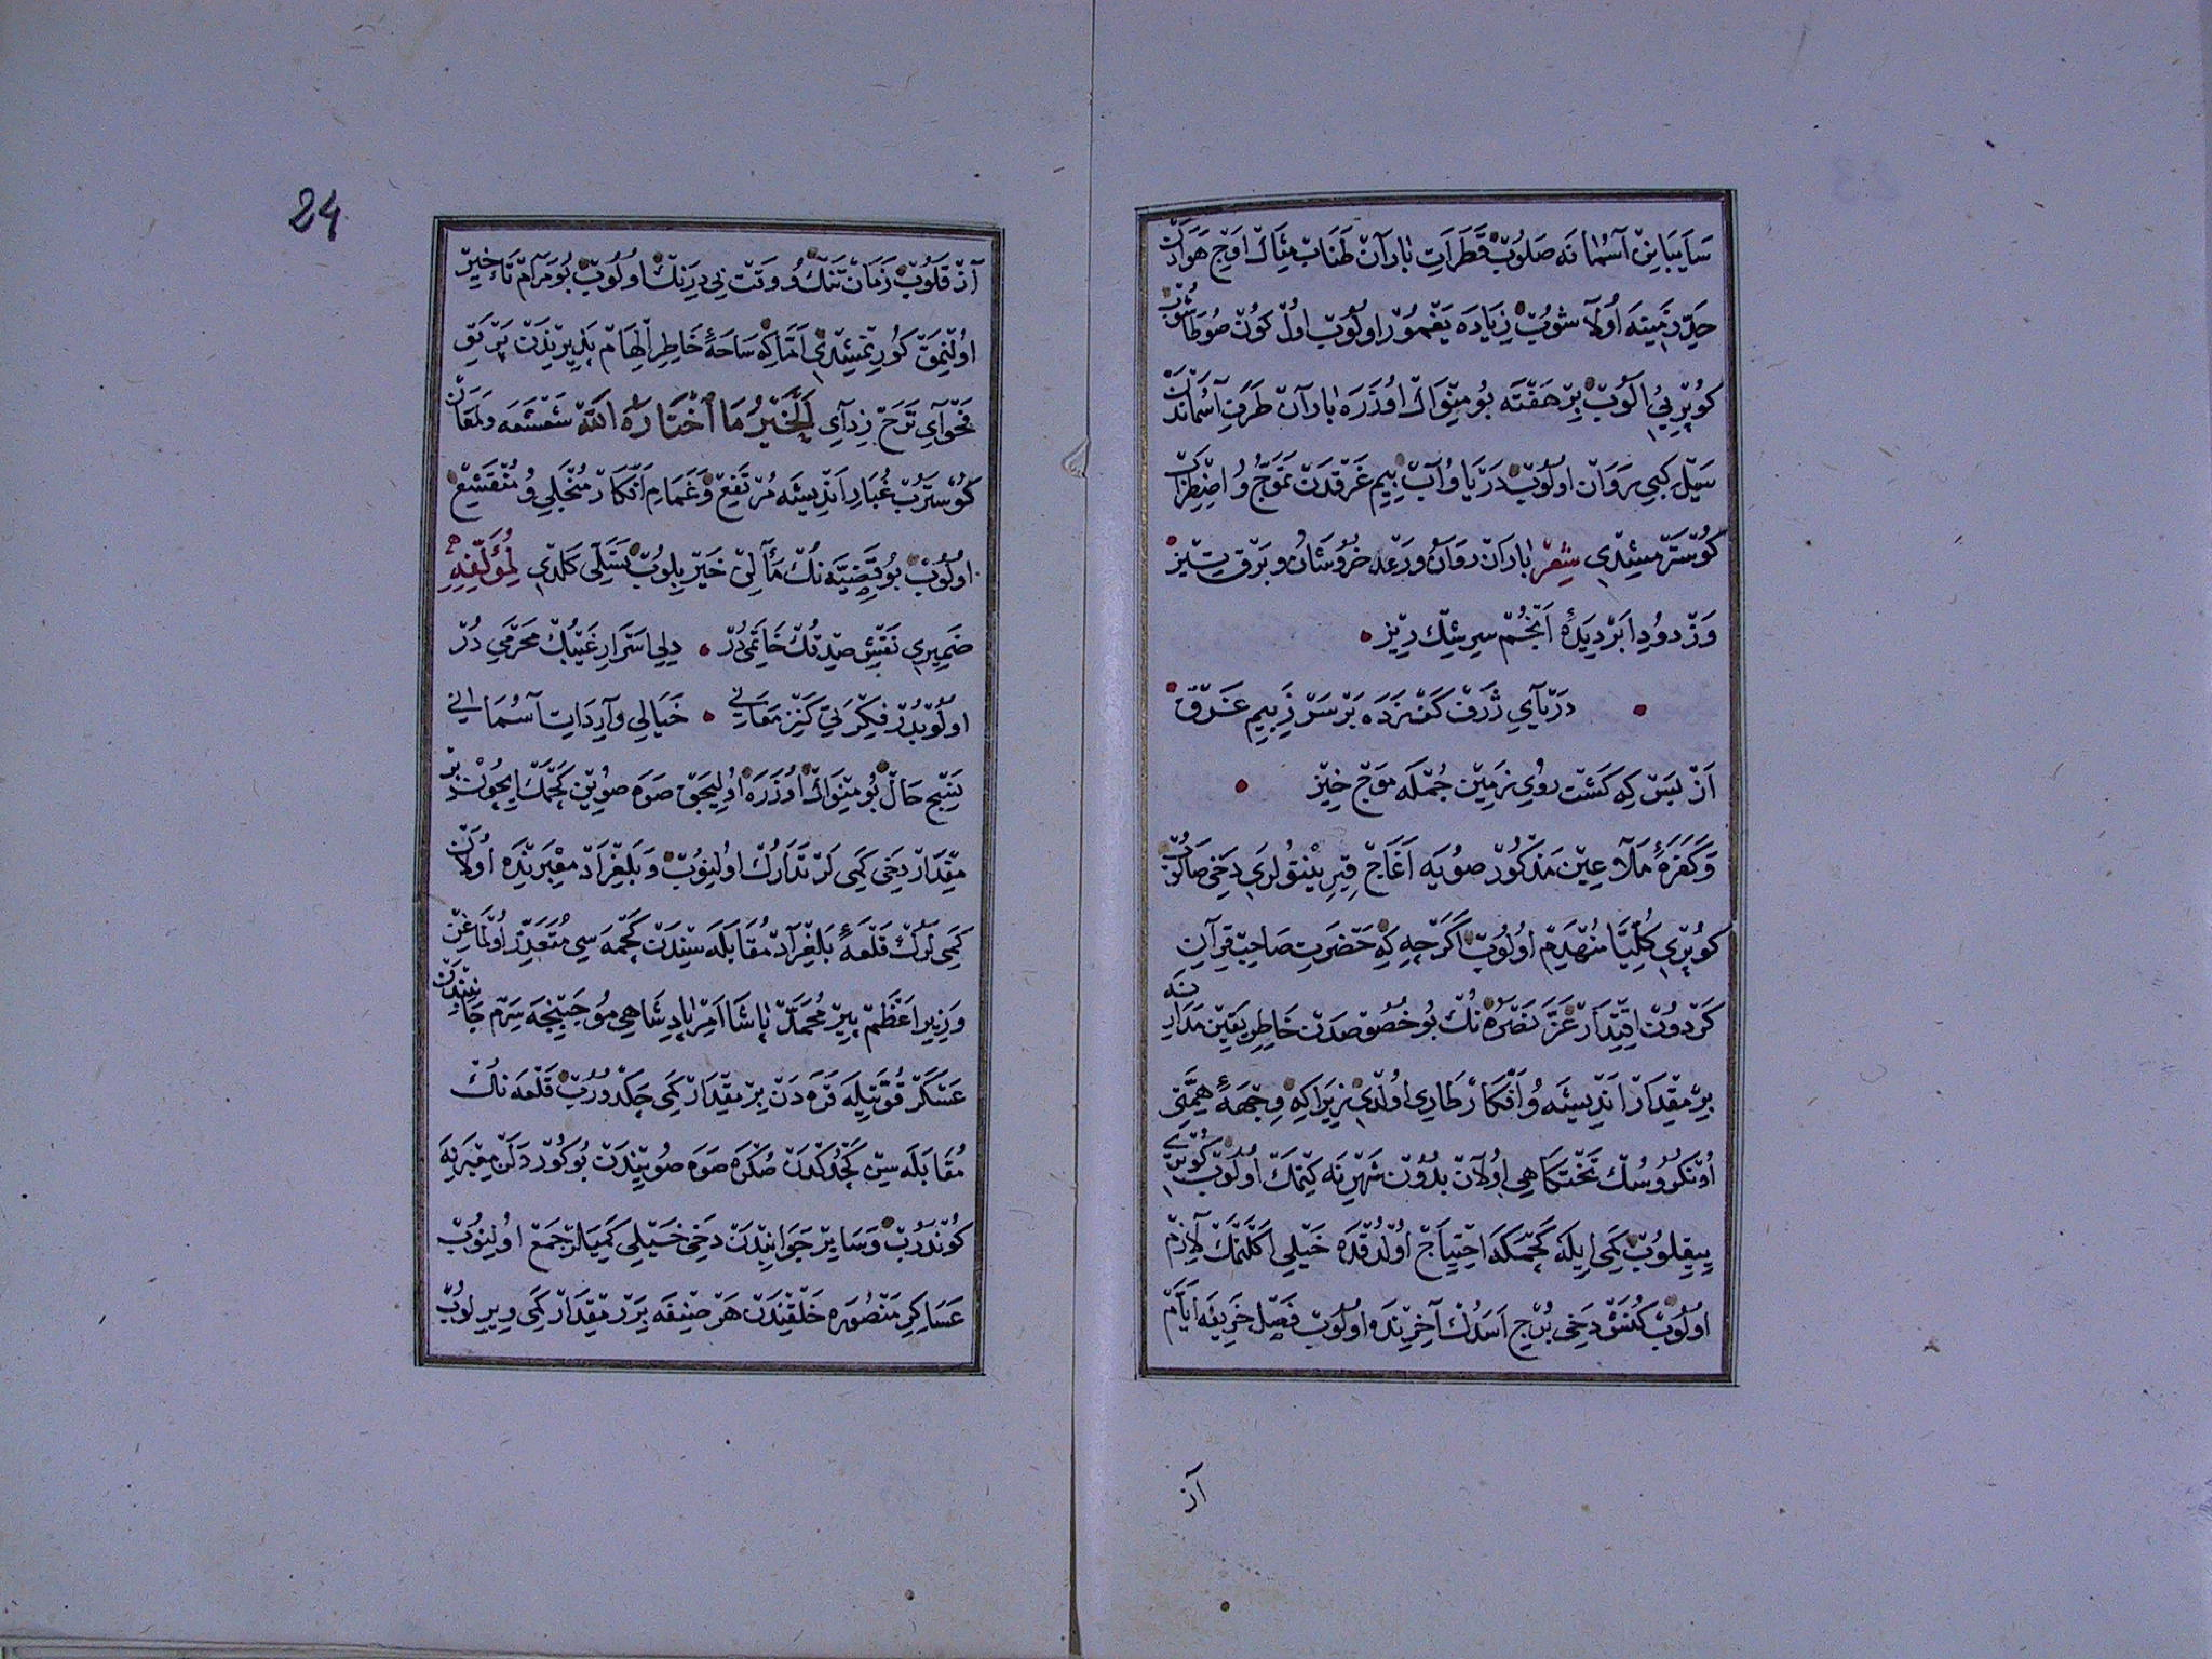 سَايَبَانِنْ آسْمَانَه صَلُوبْ قَطَرَاتِ بَارَانْ طَنَابْ مِثَالْ اَوْجِ هَوَادَنْ
حَدِّ زَمِينَه اُولَاشُوبْ زِيَادَه يَغْمُورْ اُولُوبْ اُولْ كُونْ صُو طَاشُوبْ
كُوپْرِيىِ آلُوبْ بِرْ هَفْتَه بُو مِنْوَالْ اُوزَرَه بَارَانْ طَرَفِ آسْمَانْدَنْ
سَيْلْ كِبِي رَوَانْ اُولُوبْ دَرْيَا وُ آبْ بِيمِ غَرْقْدَنْ تَمَوُّجْ وُ اضْطِرَابْ
كُوسْتَرْمِشِدِى شِعْرْ بَارَانْ رَوَانُ وَرَعْد خُرُوشَانُ وَبَرْق تِيزْ
وَزْ دُودِ اَبْرْ دِيدَهٔ اَنْجُمْ سِرِشْكْ رِيزْ
دَرْيَآىِ ژَرْفْ كَفْ زَدَه بَرْ سَرْ زِبِيمِ غَرْقْ
اَزْ بَسْ كِه كَشْتْ رُوىِ زَمِينْ جُمْلَه مَوْجْ خِيزْ
وَكَفَرَهٔ مَلَاعِينْ مَذْكُورْ صُويَه آغَاجْ قِيرِينْتُولَرِى دَخِى صَالُوبْ
كُوپْرِى كُلِّيًّا مُنْهَدِمْ اُولُوبْ اَكَرْچِه كِه حَضْرَتِ صَاحِبْقِرَانِ
كَرْدُونْ اِقْتِدَارْ عَزَّ نَصْرُهُ نُكْ بُو خُصُوصْدَنْ خَاطِرِ يَقِينْ مَدَارِينَه
بِرْ مِقْدَارْ اَنْدِيشَه وُ اَفْكَارْ طَارِى اُولْدِى زِيرَا كِه وِجْهَهٔ هِمَّتِى
اُنْكُرُوسُكْ تَخْتْكَاهِى اُولَانْ بُدُونْ شَهْرِينَه كِتْمَكْ اُولُوبْ كُوپْرِى
يِيقِلُوبْ كَمِى اِيلَه كَچْمَكَه اِحْتِيَاجْ اُولْدُقْدَه خَيْلِى اَكْلَنْمَكْ لَازِمْ
اُولُوبْ كُنَشْ دَخِى بُرْجِ اَسَدُكْ آخِرِنْدَه اُولُوبْ فَصْلِ خَرِيفَه اَيَّامْ
آز
24
آزْ قَلُوبْ زَمَانْ تَنْكُ وُ وَقْتْ بِى دِرَنْكْ اُولُوبْ بُو مَرَامْ تَأْخِيرْ
اُولِنْمَقْ كُورِنْمِشِدِى اَمَّا كِه سَاحَهٔ خَاطِرِ اِلْهَامْ پَذِيرِنْدَنْ پَرْتَوِ
فَحْوَآىِ تَرَحْ زِدَآىِ اَلْخَيْرُ مَا اخْتَارَهُ اللّٰهْ شَعْشَعَه وَلَمَعَانْ
كُوسْتَرُبْ غُبَارِ اَنْدِيشَه مُرْتَفِعْ وَغَمَامِ اَفْكَارْ مُنْجَلِى وُ مُنْقَشِعْ
اُولُوبْ بُو قَضِيَّه نُكْ مَآلِنْ خَيْرْ بِلُوبْ تَسَلِّى كَلْدِى لِمُؤَلِّفِهِ
ضَمِيرِى نَقْشِ صِدْقُكْ خَاتَمِى دُرْ دِلِى اَسْرَارِ غَيْبُكْ مَحْرَمِى دُرْ
اُولُوبْدُرْ فِكْرِ بَنِى كَنْزِ مَعَانِى خَيَالِى وَارِدَاتِ آسْمَانِى
نِتِيجِ حَالْ بُو مِنْوَالْ اُوزَرَه اُولِيجَقْ صَوَه صُويِنْ كَچْمَكْ اِيچُونْ بِرْ
مِقْدَارْ دَخِى كَمِى لَرْ تَدَارُكْ اُولِنُوبْ وَبَلِغْرَادْ مَعْبَرِنْدَه اُولَانْ
كَمِى لَرُكْ قَلْعَهٔ بَلِغْرَادْ مُقَابَلَه سِنْدَنْ كَچْمَه سِى مُتَعَذِّرْ اُولْمَاغِنْ
وَزِيرِ اَعْظَمْ پِيرْ مُحَمَّدْ پَاشَا اَمْرِ پَادِشَاهِى مُوجِبِنْجَه سِرْمْ جَانِبِنْدَنْ
عَسْكَرْ قُوَّتِيلَه قَرَه دَنْ بِرْ مِقْدَارْ كَمِى چَكْدُورُبْ قَلْعَه نُكْ
مُقَابَلَه سِنْ كَچُرْدُكْدَنْ صُكْرَه صَوَه صُويِنْدَنْ بُوكُورْدَلَنْ مَعْبَرِنَه
كُونْدَرُبْ وَسَايِرْ جَوَانِبْدَنْ دَخِى خَيْلِى كَمِيلَرْ جَمْعْ اُولِنُوبْ
عَسَاكِرِ مَنْصُورَه خَلْقِنْدَنْ هَرْ صِنِفَه بِرَرْ مِقْدَارْ كَمِى وِيرِلُوبْ